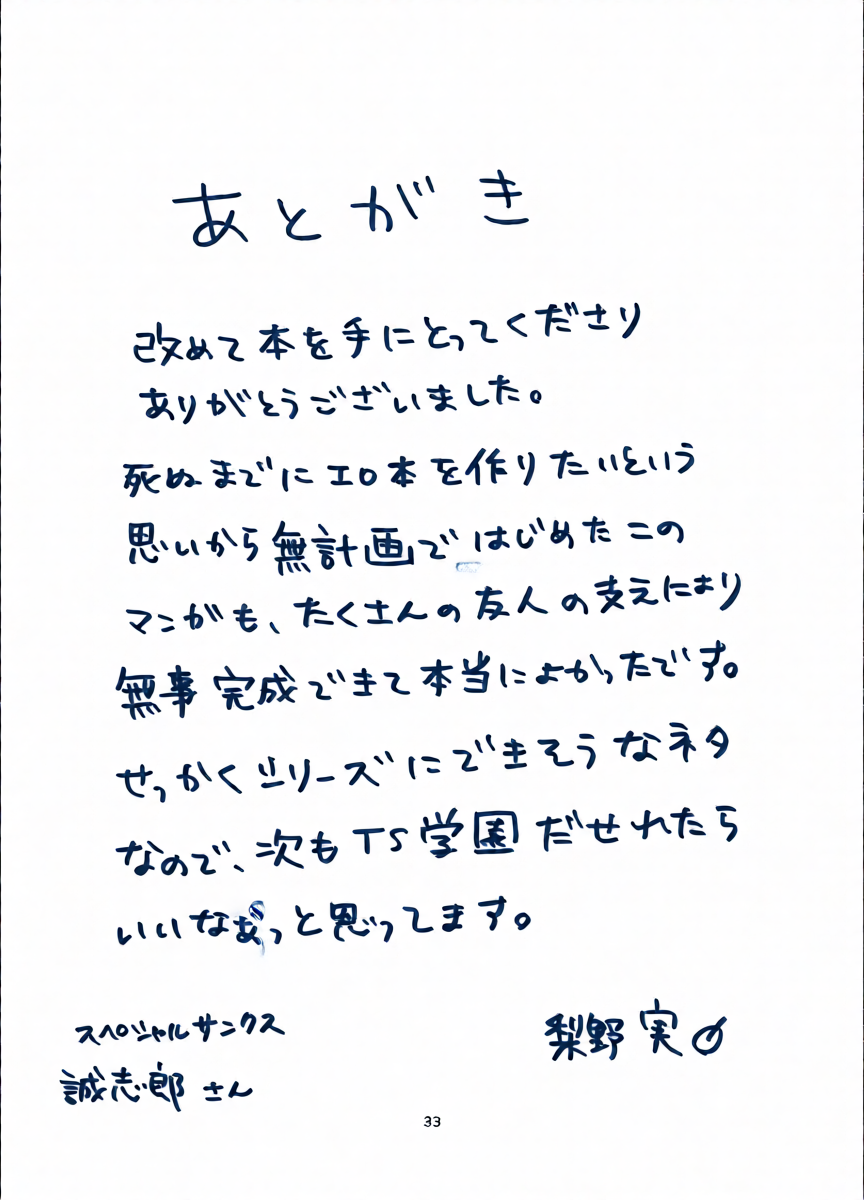 あとがき
改めて本を手にとってくださり
ありがとうございました。
死ぬまでにエロ本を作りたいという
思いから無計画ではじめたこの
マンガも、たくさんの友人の支えにより
無事完成できて本当によかったです。
せっかくシリーズにできそうなネタ
なので、次もTS学園だせれたら
いいなぁっと思ってます。
スペシャルサンクス
誠志郎さん
梨野実
33